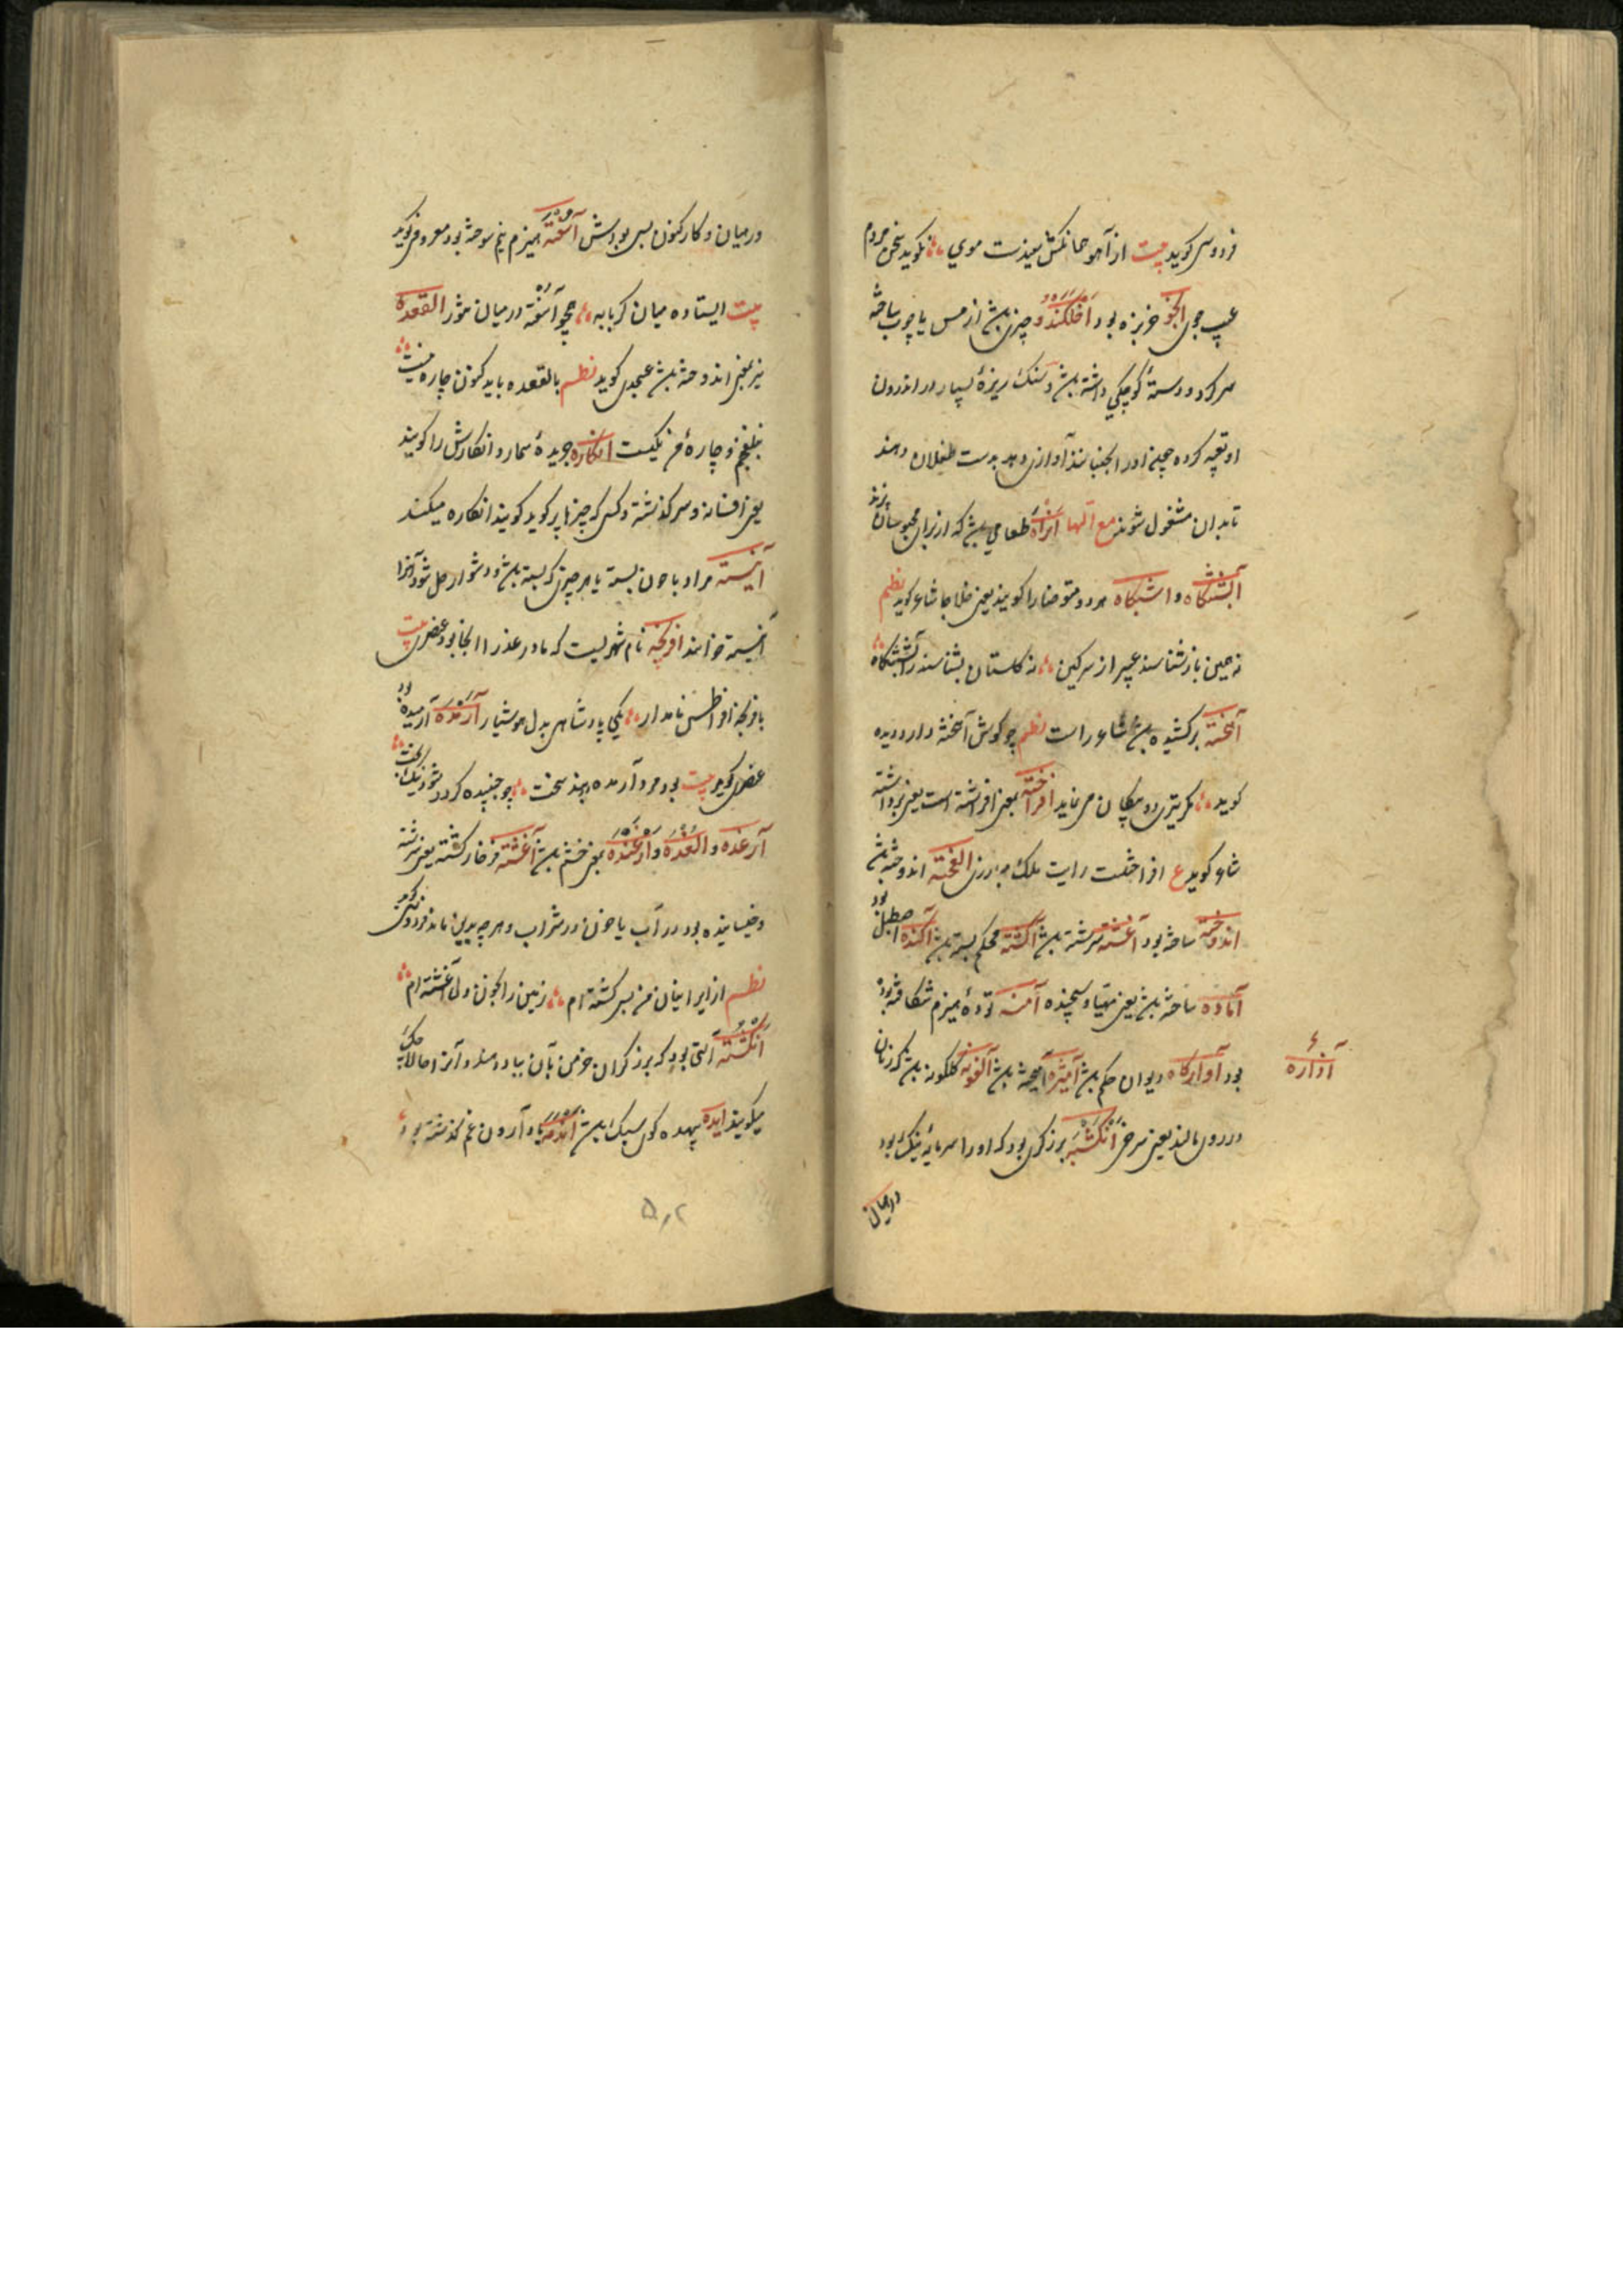 فردوسی کوید بیت از آهو همانکش سپیدست موی نکوید سخن مردم
عیب جوی خربزه بود اخلکندو چیزی باشد از مس یا چوب ساخته
مدور و دستهٔ کوچکی داشته باشد و سنک ریزهٔ بسیار در اندرون
او تعبیه کرده چون او را بجنبانند آوازی دهد بدست طفلان دهند
تا بدان مشغول شوند مع الها طعامی باشد که از برای محبوسان برند
آبشتنکاه و ابشتکاه هر دو متوضا را کویند یعنی خلا جا شاعر کوید نظم
نه همین باز شناسند عبیر از سرکین نه کلستان بشناسند ز آبشتنکاه
آهخته برکشیده باشد شاعر راست نظم چو کوش آهخته دارد دیده
کوید مکر تیری دو پیکان می نماید افراخته بمعنی افراشته است یعنی برداشته
شاعر کوید ع افراخته رایت ملک الفخته اندوخته باشد
اندوخته ساخته بود آغشته سرشته باشد محکم بسته باشد آکنده اصطبل بود
آماده ساخته باشد یعنی مهیا و سیجیده آمنه تودهٔ هیزم شکافته بود
آواره
بود آوارکاه دیوان حکم باشد آمیزه آمیخته باشد آلغونه کلکونه باشد که زنان
در روی مالند یعنی سرخی انکشبه برزکری بود که او را سرمایه نیک بود
درمیان
در میان و کارکنون بس بودش آسغته هیزم نیم سوخته بود معروفی کوید
بیت ایستاده میان کرمابه همچو آسغته در میان تنور القعده
نیز بمعنی اندوخته باشد عسجدی کوید نظم بالقعده باید کنون چاره نیست
بلفنجم و چارهٔ من یکیست انکاره جریدهٔ شمار و انکارش را کویند
یعنی افسانه و سرکذشته و کسی که چیزها پر کوید کویند انکاره میکند
آبسته مراد با خون بسته یا هر چیزی که بسته باشد و دشوار حل شود آنرا
خوانند افرنجه نام شهریست که مادر عذرا آنجا بود عنصری بیت
بافرنجه افراطس نامدار یکی پادشاهی بدل هوشیار آرمده آرمیده بود
عنصری کوید بیت بود مرد آرمده در بند سخت چو جنبیده کردد شود نیک بخت
آرغده و الغده و ارغنده بمعنی خشم باشد آغشته فرغار کشته یعنی سرشته
و خیسانیده بود در آب یا خون و در شراب و هرچه بدین ماند فردوسی کوید
نظم از ایرانیان من بسی کشته ام زمین را بخون و کل آغشته ام
انکشته آلتی بود که برزکران خرمن بآن بباد دهند و آنرا حالا
میکویند ایده بیهده کوی سبک باشد اندمه یاد آوردن غم کذشته بود
۵۰۲